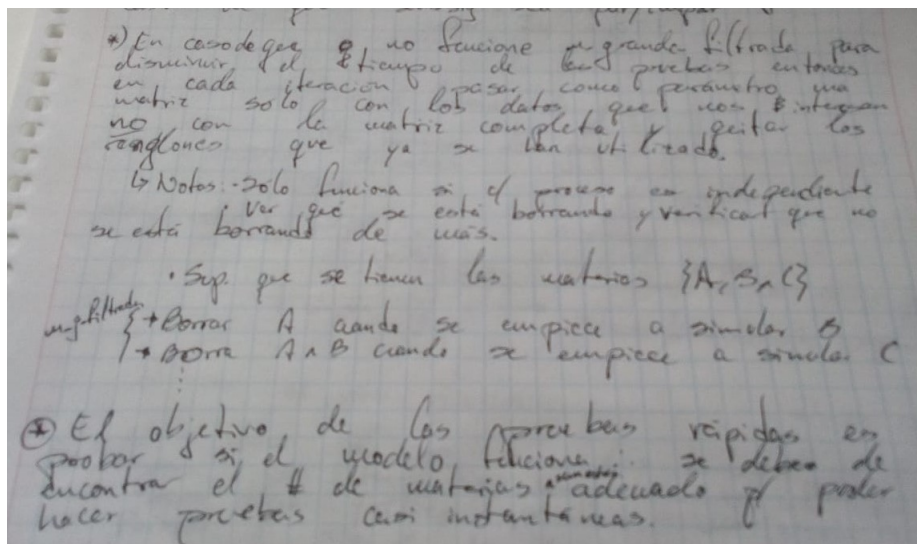 *) En caso de que no funcione m_grande_filtrada para
disminuir el tiempo de las pruebas entonces
en cada iteración pasar como parámetro una
matriz solo con los datos que nos interesan
no con la matriz completa y quitar los
renglones que ya se han utilizado.
↳ Notas: · Sólo funciona si el proceso es independiente
· Ver qué se está borrando y verificar que no
se está borrando de más.
· Sup. que se tienen las materias {A, B, C}
m_g_filtrada
→ Borrar A cuando se empiece a simular B
→ Borra A ∧ B cuando se empiece a simular C
⋮
* El objetivo de las pruebas rápidas es
probar si el modelo funciona ∴ se debe de
encontrar el # de materias adecuado p/ poder
hacer pruebas casi instantáneas.